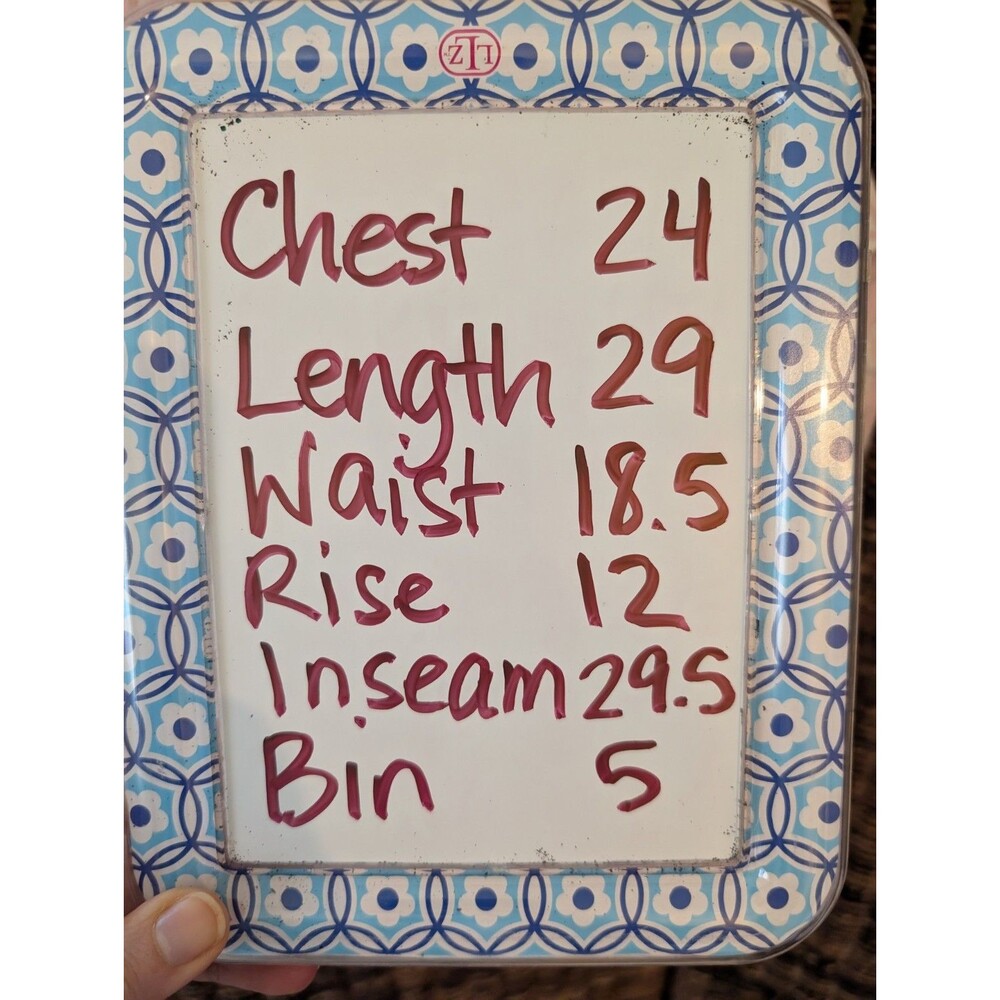 Chest 24
Length 29
Waist 18.5
Rise 12
Inseam 29.5
Bin 5